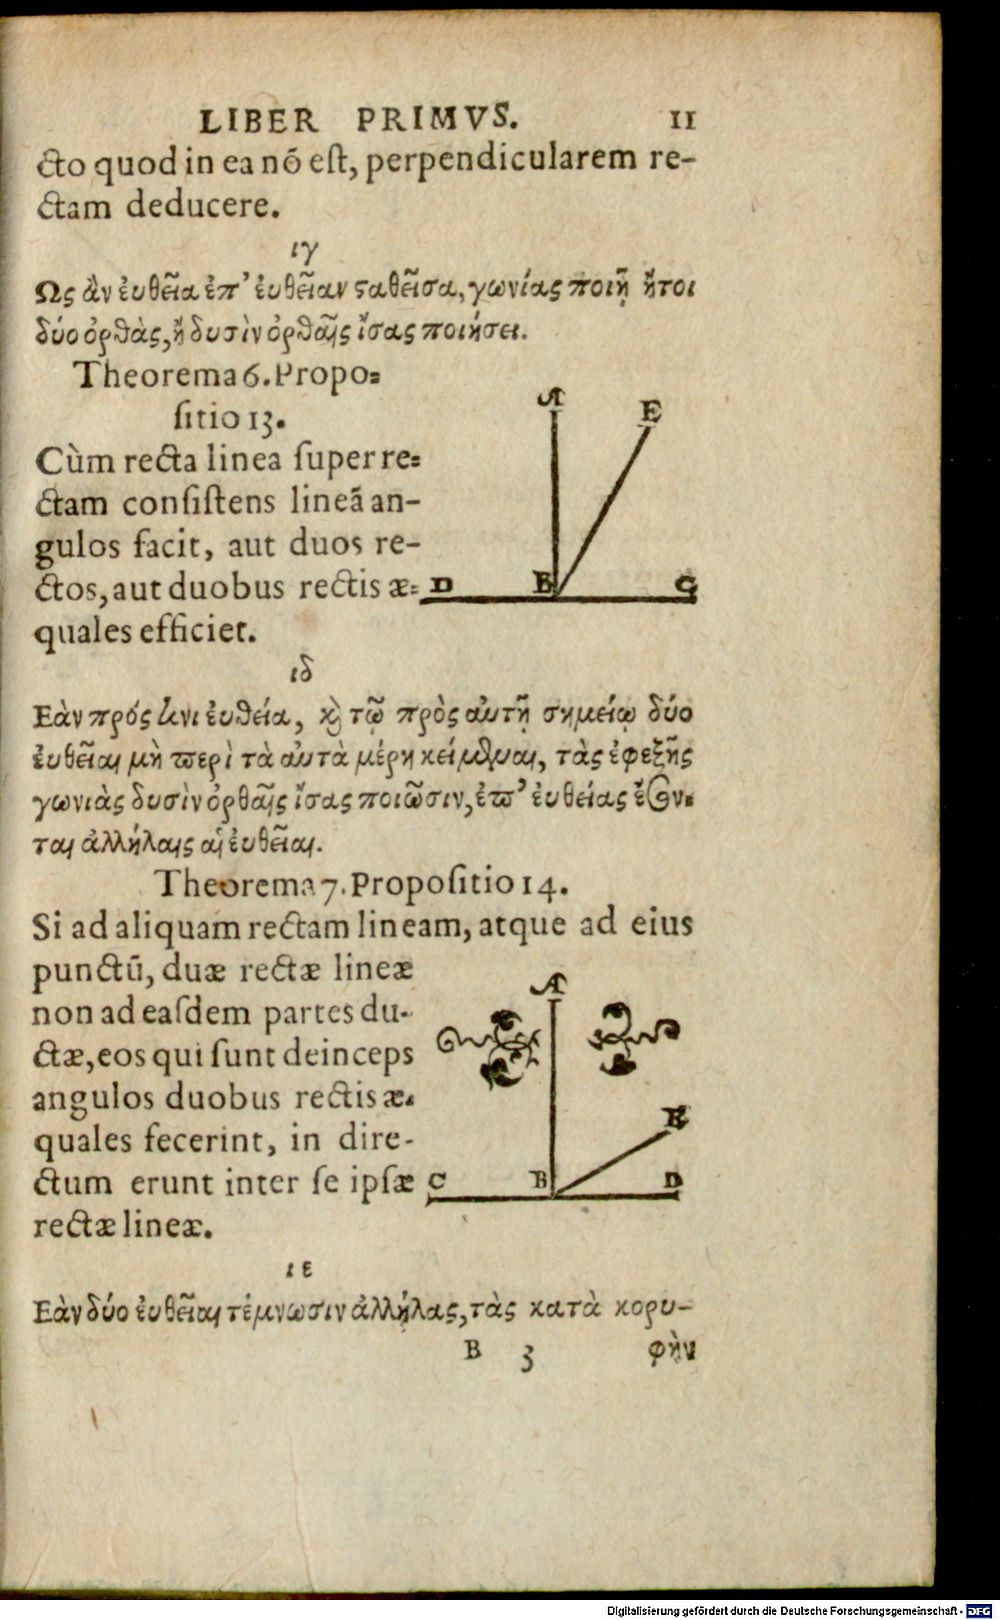 LIBER PRIMVS. 11
cto quod in ea nō eſt, perpendicularem re-
ctam deducere.
ιγ
Ως ἂν ἐυθεῖα ἐπ' ἐυθεῖαν ϛαθεῖσα, γωνίας ποιῇ ἤτοι
δύο ὀρθὰς, ἢ δυσὶν ὀρθαῖς ἴσας ποιήσει.
Theorema 6. Propo-
ſitio 13.
Cùm recta linea ſuper re-
ctam conſiſtens lineā an-
gulos facit, aut duos re-
ctos, aut duobus rectis æ-
quales efficiet.
A
E
D B C
ιδ
Εὰν πρός τινι ἐυθεία, ϗ τῷ πρὸς ἀυτῇ σημείῳ δύο
ἐυθεῖαι μὴ ϖερὶ τὰ ἀυτὰ μέρη κείμεναι, τὰς ἐφεξῆς
γωνιὰς δυσὶν ὀρθαῖς ἴσας ποιῶσιν, ἐϖ' ἐυθείας ἔσον-
ται ἀλλήλαις αἱ ἐυθεῖαι.
Theorema 7. Propoſitio 14.
Si ad aliquam rectam lineam, atque ad eius
punctū, duæ rectæ lineæ
non ad eaſdem partes du-
ctæ, eos qui ſunt deinceps
angulos duobus rectis æ-
quales fecerint, in dire-
ctum erunt inter ſe ipſæ
rectæ lineæ.
A
E
C B D
ιε
Εὰν δύο ἐυθεῖαι τέμνωσιν ἀλλήλας, τὰς κατὰ κορυ-
B 3 φὴν
Digitalisierung gefördert durch die Deutsche Forschungsgemeinschaft - DFG